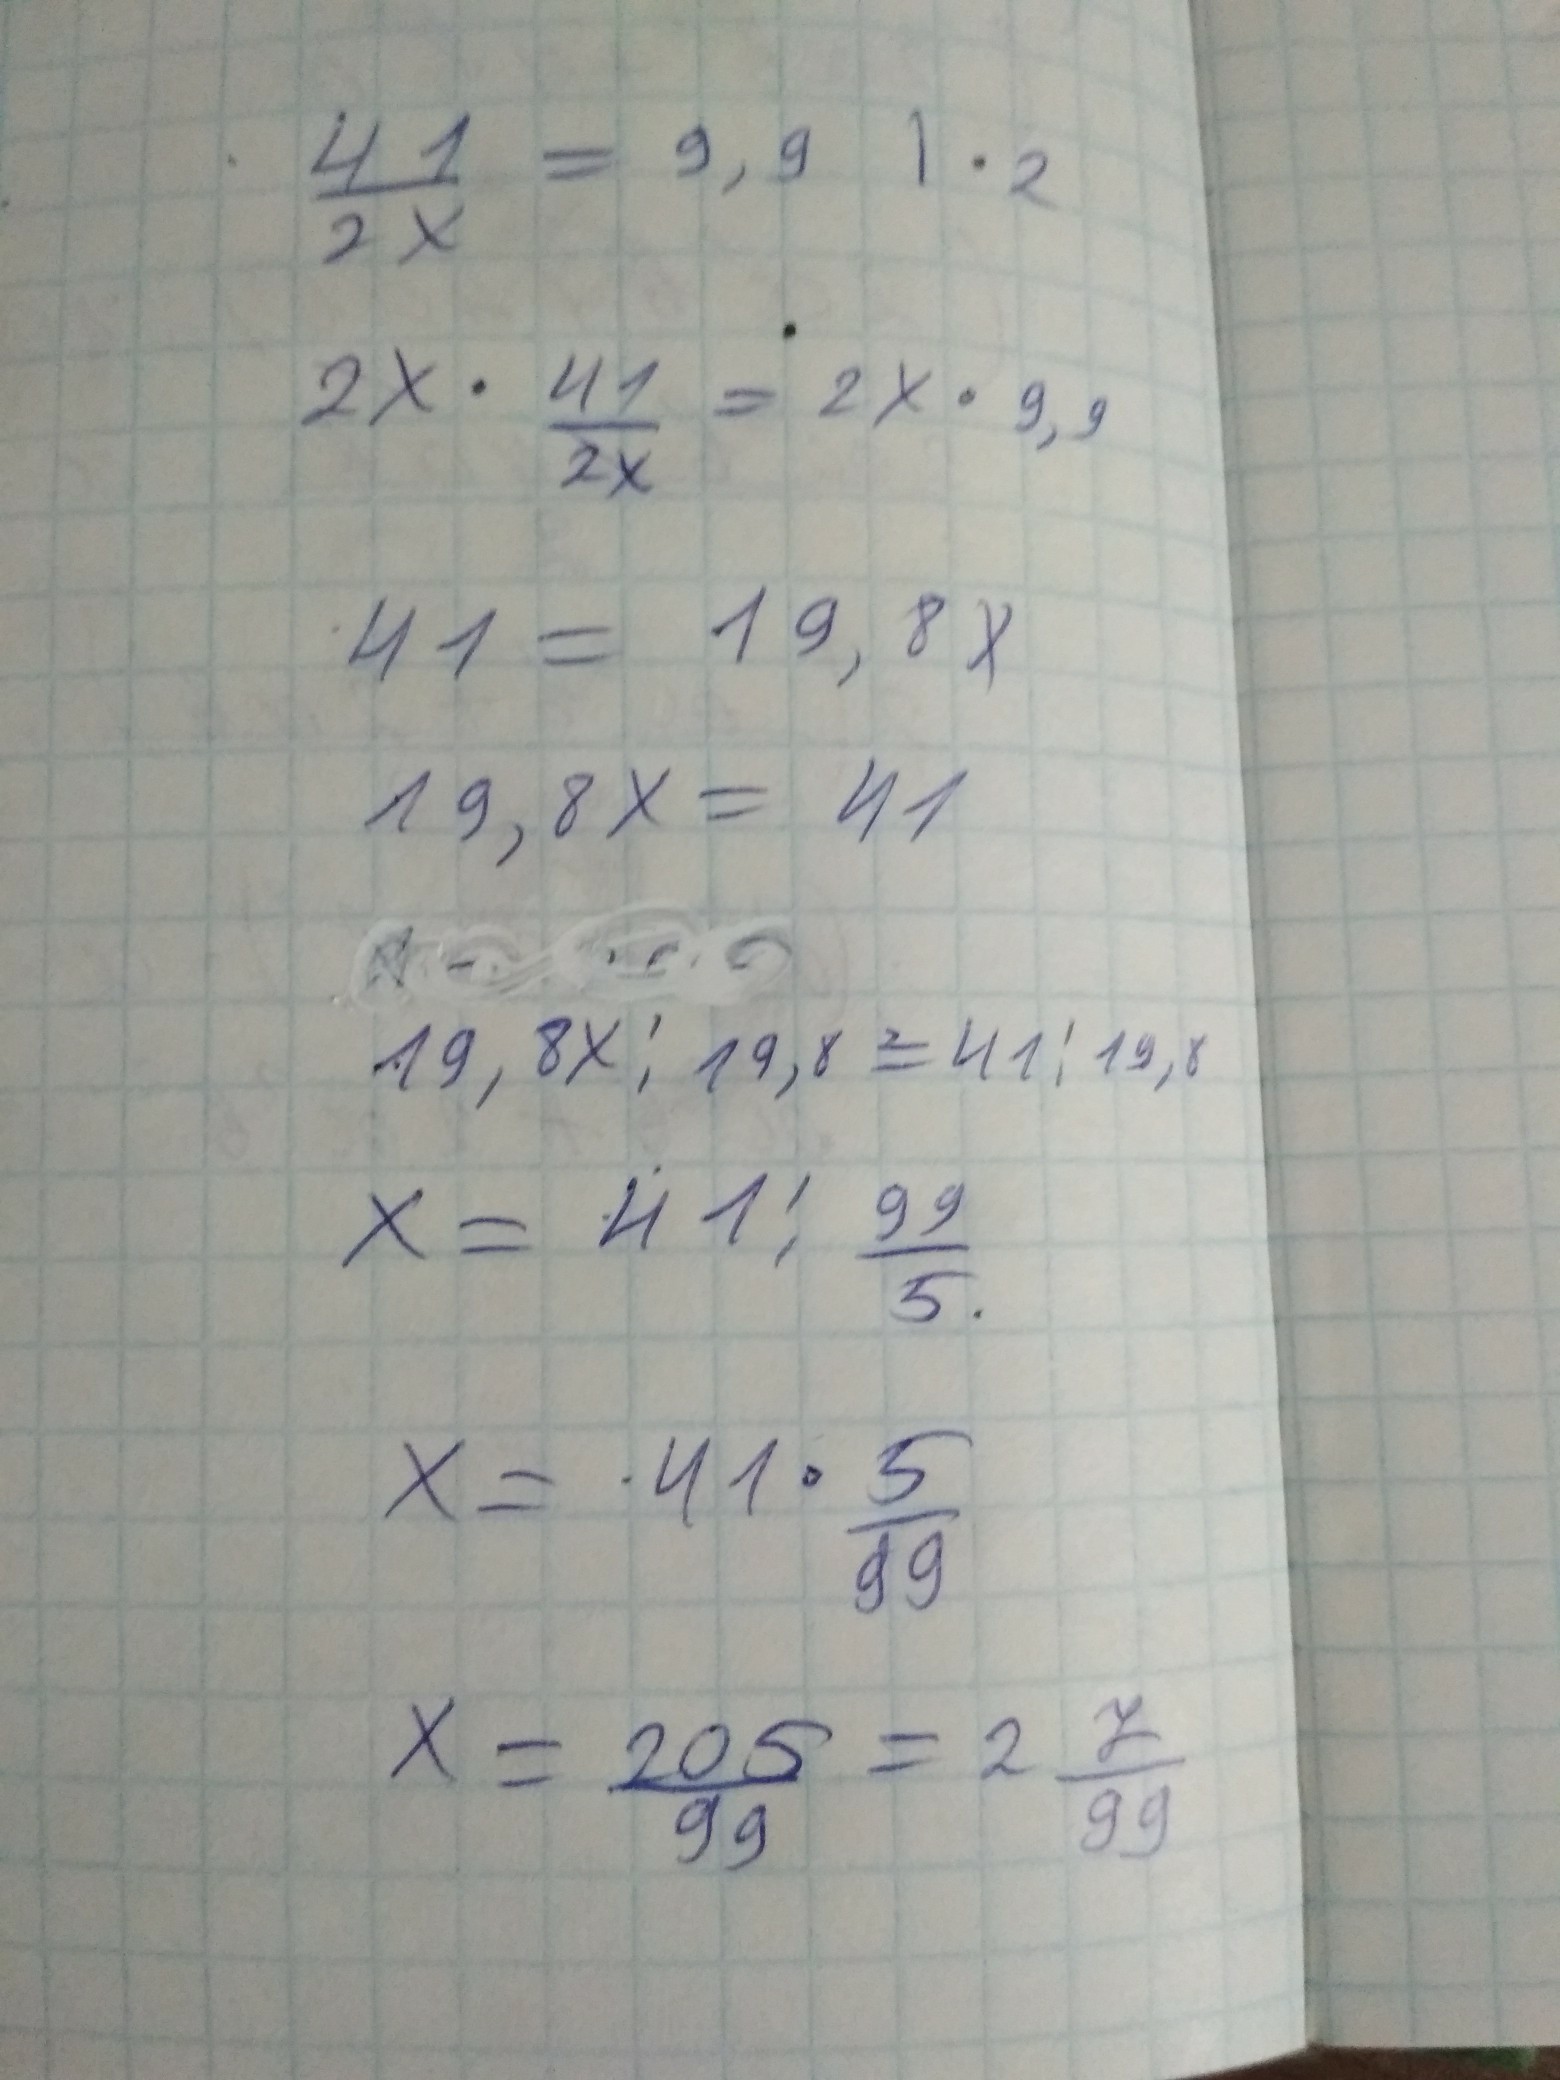 41/2x = 9,9 | · 2
2x · 41/2x = 2x · 9,9
41 = 19,8x
19,8x = 41
19,8x : 19,8 = 41 : 19,8
x = 41 : 99/5
x = 41 · 5/99
x = 205/99 = 2 7/99